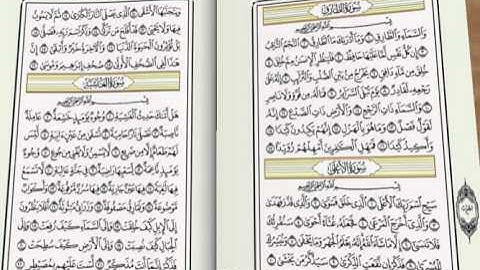 سُورَةُ الطَّارِقِ
بِسْمِ اللَّهِ الرَّحْمَٰنِ الرَّحِيمِ
وَالسَّمَاءِ وَالطَّارِقِ ١ وَمَا أَدْرَاكَ مَا الطَّارِقُ ٢ النَّجْمُ الثَّاقِبُ
٣ إِن كُلُّ نَفْسٍ لَّمَّا عَلَيْهَا حَافِظٌ ٤ فَلْيَنظُرِ الْإِنسَانُ مِمَّ خُلِقَ ٥
خُلِقَ مِن مَّاءٍ دَافِقٍ ٦ يَخْرُجُ مِن بَيْنِ الصُّلْبِ وَالتَّرَائِبِ ٧ إِنَّهُ عَلَىٰ
رَجْعِهِ لَقَادِرٌ ٨ يَوْمَ تُبْلَى السَّرَائِرُ ٩ فَمَا لَهُ مِن قُوَّةٍ وَلَا نَاصِرٍ ١٠
وَالسَّمَاءِ ذَاتِ الرَّجْعِ ١١ وَالْأَرْضِ ذَاتِ الصَّدْعِ ١٢ إِنَّهُ
لَقَوْلٌ فَصْلٌ ١٣ وَمَا هُوَ بِالْهَزْلِ ١٤ إِنَّهُمْ يَكِيدُونَ كَيْدًا
١٥ وَأَكِيدُ كَيْدًا ١٦ فَمَهِّلِ الْكَافِرِينَ أَمْهِلْهُمْ رُوَيْدًا ١٧
سُورَةُ الْأَعْلَى
بِسْمِ اللَّهِ الرَّحْمَٰنِ الرَّحِيمِ
سَبِّحِ اسْمَ رَبِّكَ الْأَعْلَى ١ الَّذِي خَلَقَ فَسَوَّىٰ ٢ وَالَّذِي قَدَّرَ فَهَدَىٰ
٣ وَالَّذِي أَخْرَجَ الْمَرْعَىٰ ٤ فَجَعَلَهُ غُثَاءً أَحْوَىٰ ٥ سَنُقْرِئُكَ
فَلَا تَنسَىٰ ٦ إِلَّا مَا شَاءَ اللَّهُ إِنَّهُ يَعْلَمُ الْجَهْرَ وَمَا يَخْفَىٰ ٧
وَنُيَسِّرُكَ لِلْيُسْرَىٰ ٨ فَذَكِّرْ إِن نَّفَعَتِ الذِّكْرَىٰ ٩ سَيَذَّكَّرُ مَن يَخْشَىٰ ١٠
وَيَتَجَنَّبُهَا الْأَشْقَى ١١ الَّذِي يَصْلَى النَّارَ الْكُبْرَىٰ ١٢ ثُمَّ لَا يَمُوتُ
فِيهَا وَلَا يَحْيَىٰ ١٣ قَدْ أَفْلَحَ مَن تَزَكَّىٰ ١٤ وَذَكَرَ اسْمَ رَبِّهِ فَصَلَّىٰ ١٥
بَلْ تُؤْثِرُونَ الْحَيَاةَ الدُّنْيَا ١٦ وَالْآخِرَةُ خَيْرٌ وَأَبْقَىٰ ١٧ إِنَّ
هَٰذَا لَفِي الصُّحُفِ الْأُولَىٰ ١٨ صُحُفِ إِبْرَاهِيمَ وَمُوسَىٰ ١٩
سُورَةُ الْغَاشِيَةِ
بِسْمِ اللَّهِ الرَّحْمَٰنِ الرَّحِيمِ
هَلْ أَتَاكَ حَدِيثُ الْغَاشِيَةِ ١ وُجُوهٌ يَوْمَئِذٍ خَاشِعَةٌ ٢ عَامِلَةٌ
نَّاصِبَةٌ ٣ تَصْلَىٰ نَارًا حَامِيَةً ٤ تُسْقَىٰ مِنْ عَيْنٍ آنِيَةٍ ٥ لَّيْسَ
لَهُمْ طَعَامٌ إِلَّا مِن ضَرِيعٍ ٦ لَّا يُسْمِنُ وَلَا يُغْنِي مِن جُوعٍ ٧ وُجُوهٌ
يَوْمَئِذٍ نَّاعِمَةٌ ٨ لِّسَعْيِهَا رَاضِيَةٌ ٩ فِي جَنَّةٍ عَالِيَةٍ ١٠ لَّا تَسْمَعُ
فِيهَا لَاغِيَةً ١١ فِيهَا عَيْنٌ جَارِيَةٌ ١٢ فِيهَا سُرُرٌ مَّرْفُوعَةٌ ١٣ وَأَكْوَابٌ
مَّوْضُوعَةٌ ١٤ وَنَمَارِقُ مَصْفُوفَةٌ ١٥ وَزَرَابِيُّ مَبْثُوثَةٌ ١٦ أَفَلَا يَنظُرُونَ
إِلَى الْإِبِلِ كَيْفَ خُلِقَتْ ١٧ وَإِلَى السَّمَاءِ كَيْفَ رُفِعَتْ ١٨ وَإِلَى
الْجِبَالِ كَيْفَ نُصِبَتْ ١٩ وَإِلَى الْأَرْضِ كَيْفَ سُطِحَتْ ٢٠
فَذَكِّرْ إِنَّمَا أَنتَ مُذَكِّرٌ ٢١ لَّسْتَ عَلَيْهِم بِمُصَيْطِرٍ ٢٢